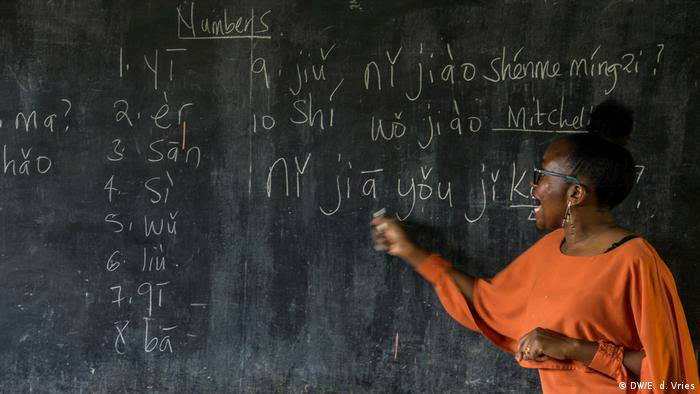 Numbers.
ma?
hǎo
1. yī
2. èr
3 sān
4. sì
5. wǔ
6. liù.
7. qī
8 bā
9. jiǔ
10 shí
nǐ jiào shénme míngzi?
wǒ jiào Mitchel
nǐ jiā yǒu jǐ ?
© DW/E. d. Vries